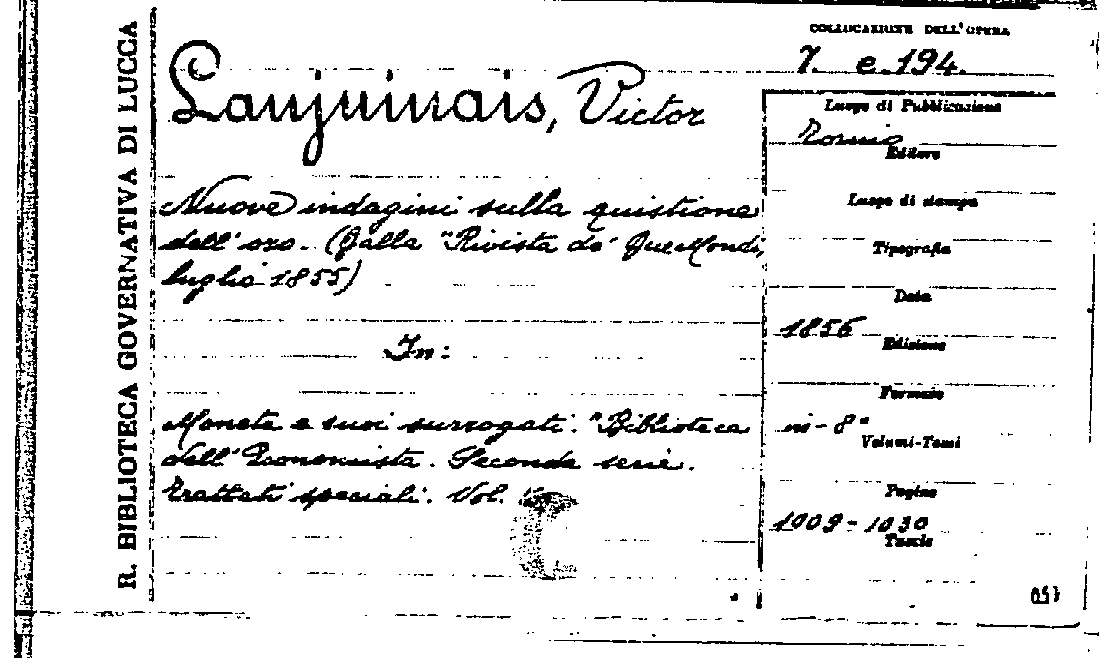 R. BIBLIOTECA GOVERNATIVA DI LUCCA
COLLOCAZIONE DELL'OPERA
7. e.194.
Lanjuinais, Victor
Luogo di Pubblicazione
Torino
Editore
Nuove indagini sulla quistione
dell'oro. (Dalla "Rivista de' Due Mondi,
luglio 1855)
Luogo di stampa
Tipografia
Data
1856
In:
Edizione
Formato
Moneta e suoi surrogati. "Biblioteca
in-8°
Volumi-Tomi
dell'Economista. Seconda serie.
Trattati speciali. Vol.
Pagine
1009-1030
Tavole
057